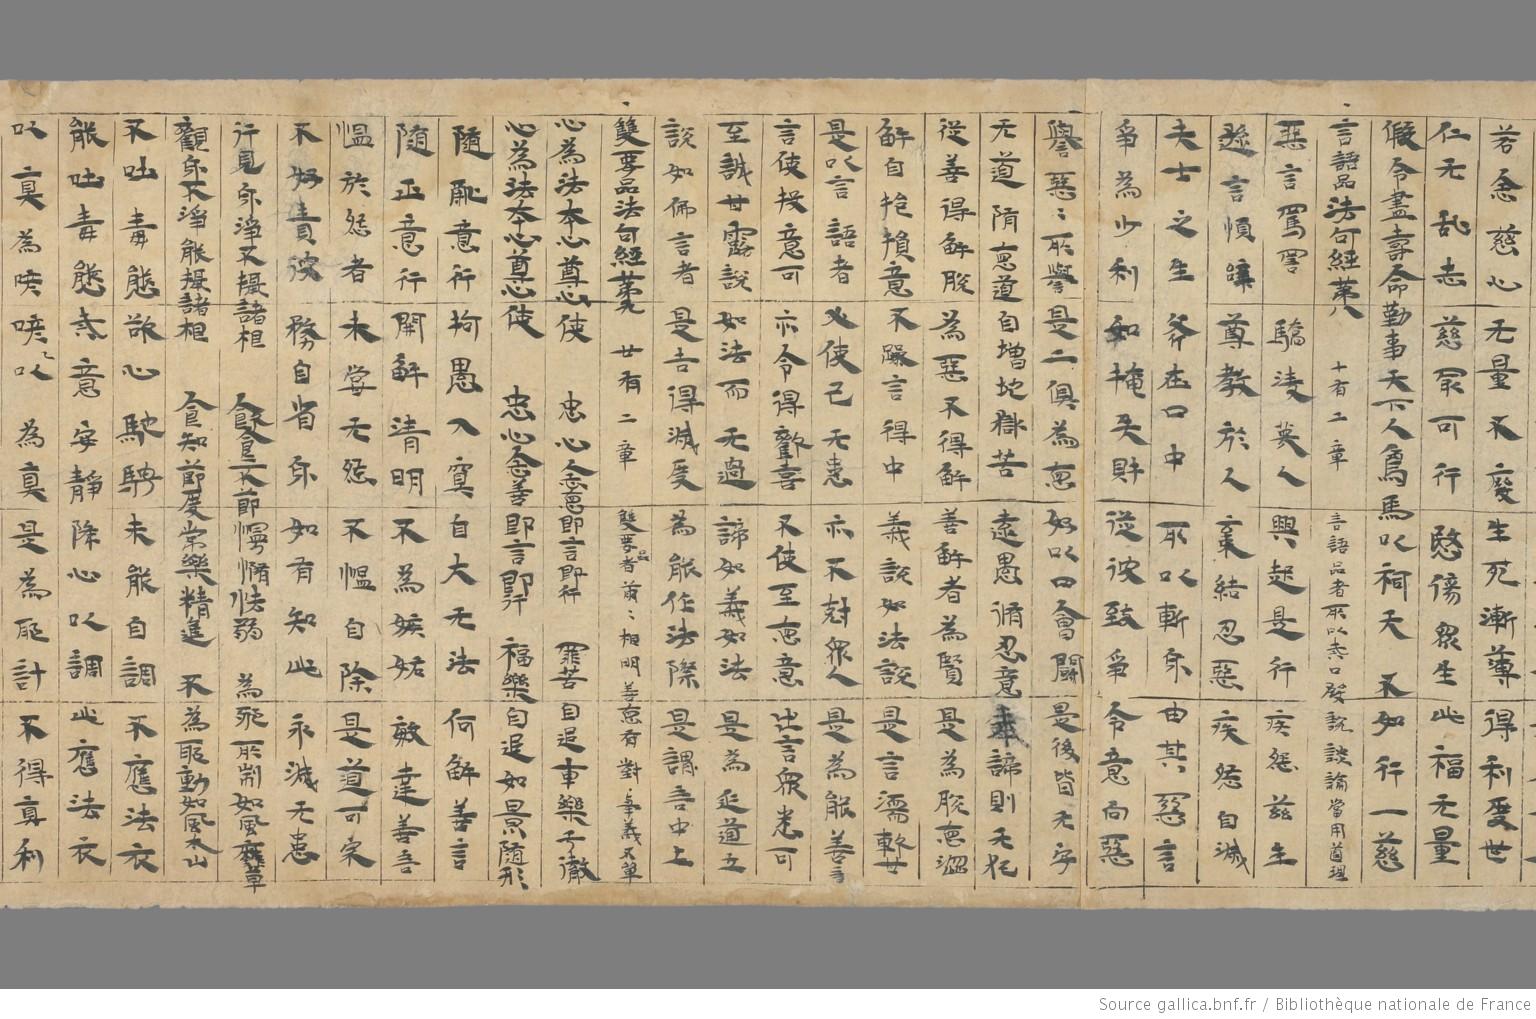 若念慈心 无量不廢 生死漸薄 得利度世
仁无乱志 慈最可行 愍傷衆生 此福无量
假令盡壽命 勤事天下人 鳥馬以祠天 不如行一慈
言語品法句經第八 十有二章 言語品者所以戒口發說談論當用道理
惡言罵詈 驕淩英人 興起是行 疾怨茲生
遜言慎 尊教於人 棄結忍惡 疾怨自滅
夫士之生 斧在口中 所以斬身 由其惡言
爭為少利 如掩失財 從彼致爭 令意向惡
譽惡惡所譽 是二俱為惡 好以口會鬪 是後皆无安
无道墮惡道 自增地獄苦 遠愚脩忍意 諦則无犯
從善得解脫 為惡不得解 善解者為賢 是為脫惡
解自抱損意 不躁言得中 義說如法說 是言濡軟甘
是以言語者 必使己无患 亦不尅衆人 是為能善言
言使投意可 亦令得歡喜 不使至惡意 出言衆悉可
至誠甘露說 如法而无過 諦如義如法 是為近道立
說如佛言者 是吉得滅度 為能作法際 是謂言中上
雙要品法句經第九 廿有二章 雙要品者 明善惡有對 義不單
心為法本 心尊心使 中心念惡 即言即行 罪苦自追 車轢于轍
心為法本 心尊心使 忠心念善 即言即行 福樂自追 如影隨形
隨亂意行 拘愚入冥 自大无法 何解善言
隨正意行 開解清明 不為嫉妬 敏達善言
慍於怨者 未嘗无怨 不慍自除 是道可宗
不好責彼 務自省身 如有知此 永滅无患
行見身淨 不攝諸根 飲食不節 慢惰怯弱 為邪所制 如風靡草
觀身不淨 能攝諸根 食知節度 常樂精進 不為邪動 如風大山
不吐毒態 欲心馳騁 未能自調 不應法衣
能吐毒態 戒意安靜 降心以調 此應法衣
以真為 以 為真 是為邪計 不得真利
Source gallica.bnf.fr / Bibliothèque nationale de France